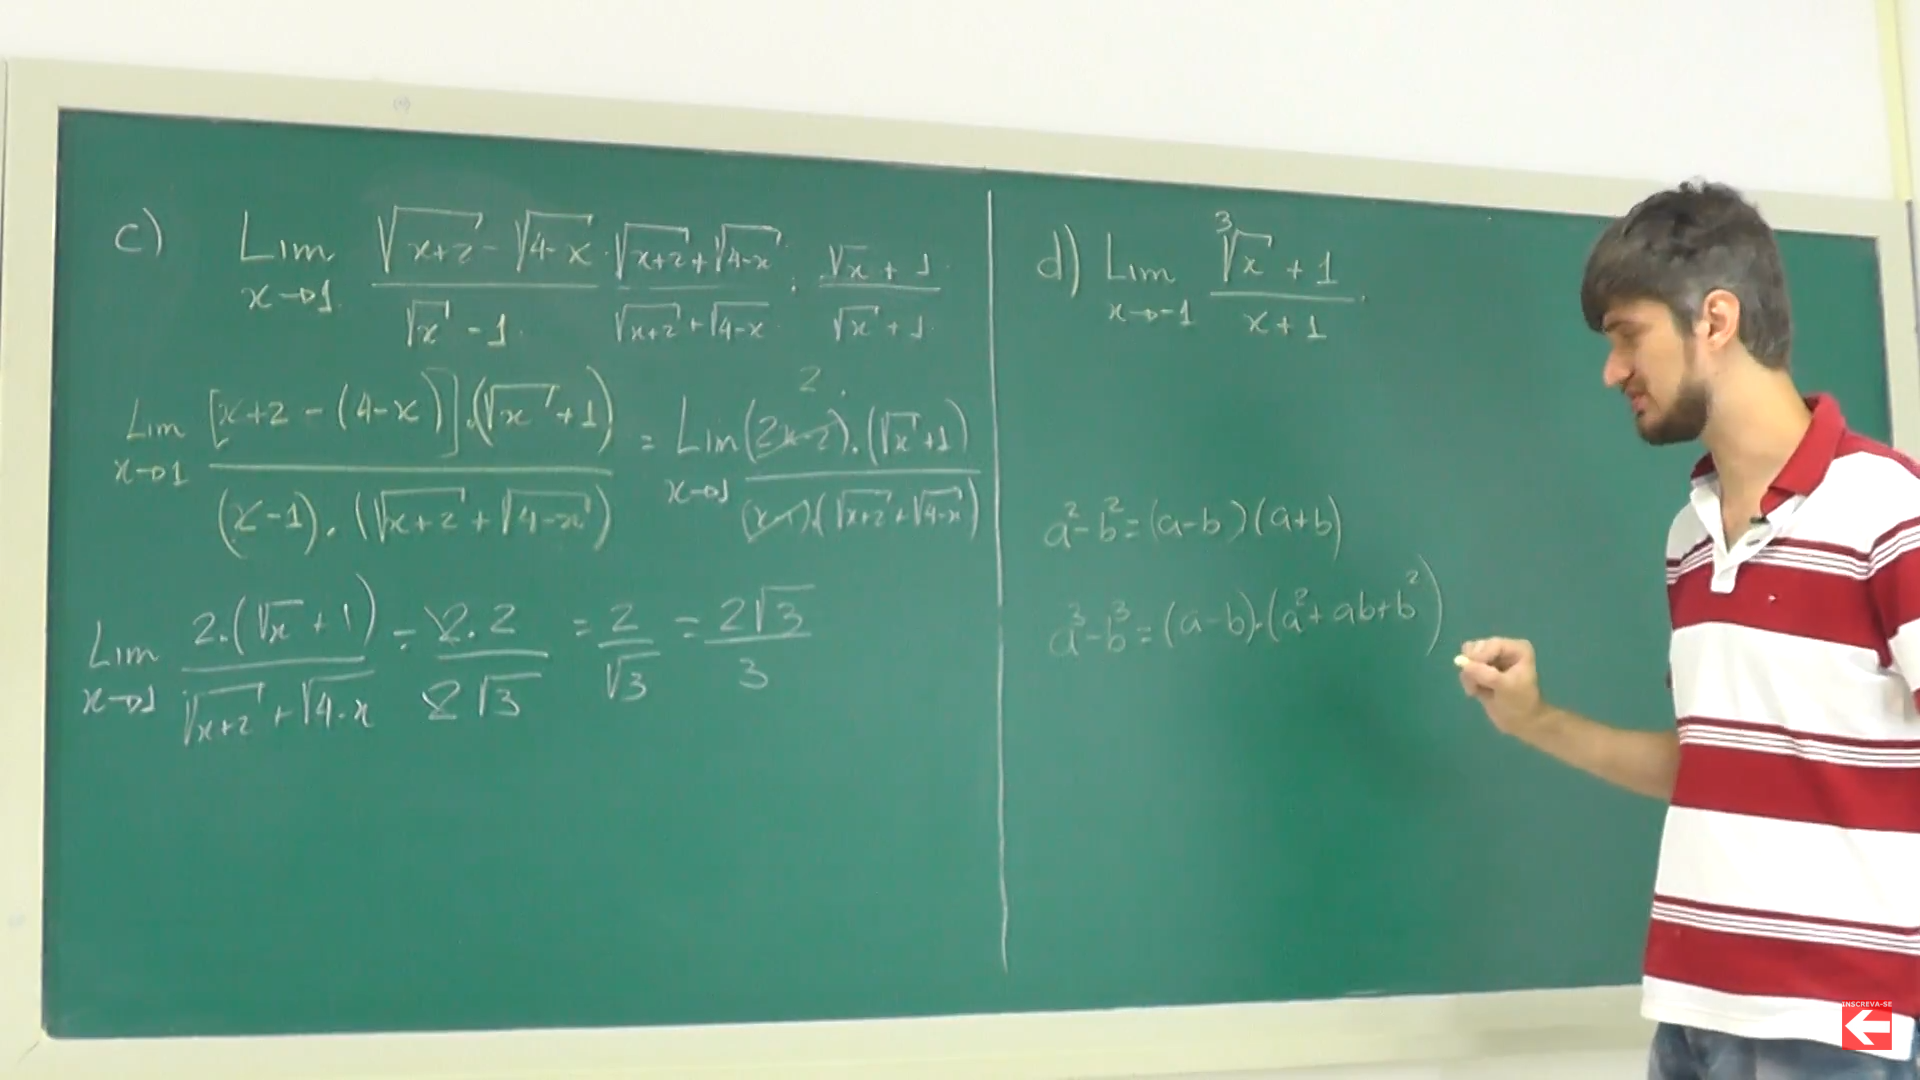 c) Lim x→1 (√(x+2) - √(4-x))/(√x - 1) · (√(x+2) + √(4-x))/(√(x+2) + √(4-x)) · (√x + 1)/(√x + 1)
Lim x→1 [x+2 - (4-x)].(√x + 1)/((x-1).(√(x+2) + √(4-x))) = Lim x→1 (2x-2).(√x + 1)/((x-1).(√(x+2) + √(4-x))) 2.
Lim x→1 2.(√x + 1)/(√(x+2) + √(4-x)) = 2.2/(2√3) = 2/√3 = 2√3/3
d) Lim x→-1 (³√x + 1)/(x+1).
a² - b² = (a-b)(a+b)
a³ - b³ = (a-b).(a² + ab + b²)
INSCREVA-SE